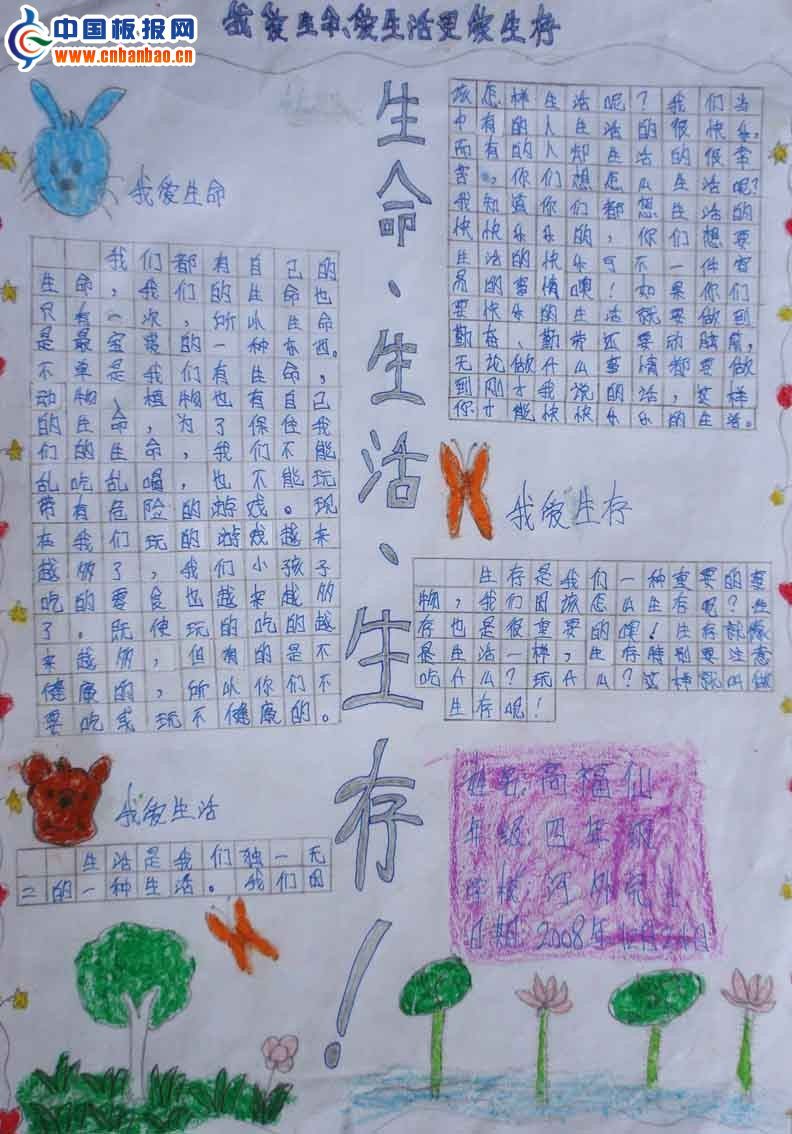 中国板报网
www.cnbanbao.cn
我爱生命、爱生活更爱生存
生命、生活、生存！
我爱生命
我们都有自己的
生命，我们的生命也
只有一次，所以生命
是最宝贵的一种东西。
不单是我们有生命，
动物、植物也有自己
的生命，为了保住我
们的生命，我们不能
乱吃乱喝，也不能玩
带有危险的游戏。现
在我们玩的游戏越来
越多了，我们小孩子
吃的零食也越来越多
了。既使玩的吃的越
来越多，但有的是不
健康的，所以你们不
要吃或玩不健康的。
我爱生活
生活是我们独一无
二的一种生活。我们因
该怎样生活呢？我们当
中有的人生活的很快乐，
而有的人却生活的很辛
苦，你们想怎么生活呢？
我知道你们都想生活的
快快乐乐的，你们想要
生活的快乐可不一件容
易的事情噢！如果你们
要快乐的生活就要做到
勤奋、勤劳还要动脑筋，
无论做什么事情都要做
到刚才我说的话，这样
你才能快快乐乐的生活。
我爱生存
生存是我们一种重要的事
物，我们因该怎么生存呢？生
存也是很重要的噢！生存就像
是生活一样，生存特别要注意
吃什么？玩什么？这样就叫做
生存呢！
姓名:高福仙
年级:四年级
学校:河外完小
日期:2008年12月